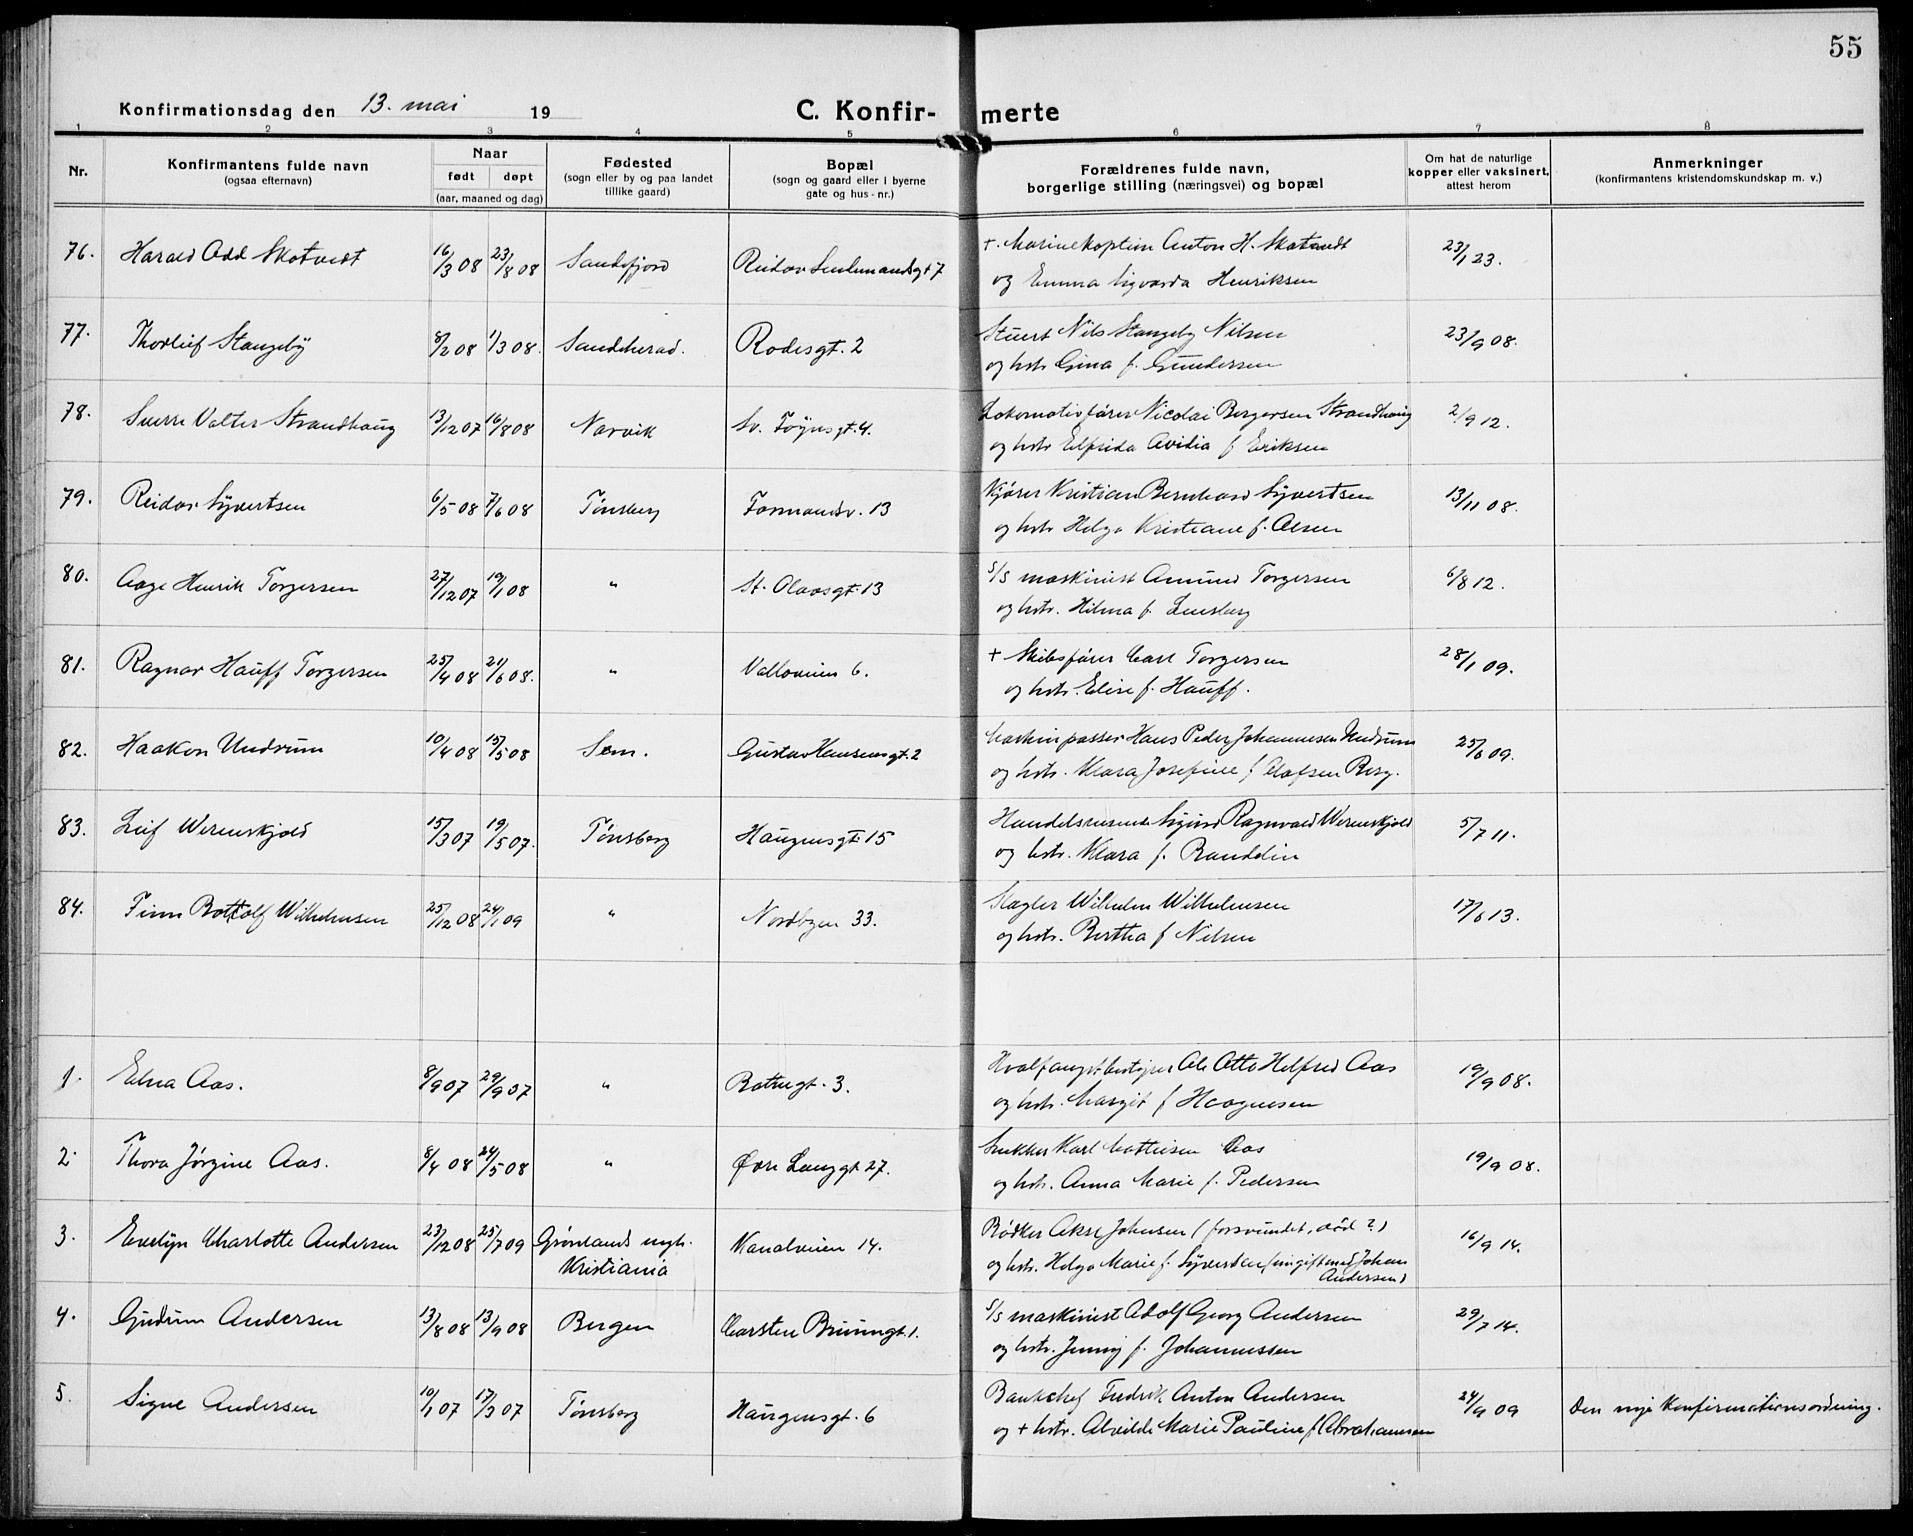 55
Konfirmationsdag den 13. mai 19
C. Konfirmerte
1 2 3 4 5 6 7 8
Nr.
Konfirmantens fulde navn
(ogsaa efternavn)
Naar
født døpt
(aar, maaned og dag)
Fødested
(sogn eller by og paa landet
tillike gaard)
Bopæl
(sogn og gaard eller i byerne
gate og hus-nr.)
Forældrenes fulde navn,
borgerlige stilling (næringsvei) og bopæl
Om hat de naturlige
kopper eller vaksinert,
attest herom
Anmerkninger
(konfirmantens kristendomskundskap m. v.)
76. Harald Odd Skotvedt 16/3 08 23/8 08 Sandefjord 7 +. Marinekaptein Anton H. Skotvedt 23/1 23.
og Emma Sigvarda Henriksen
77. Thorleif Stangeby 8/2 08 1/3 08. Sandeherad. Rodesgt. 2 Stuert Nils Stangeby Nilsen 23/9 08.
og hstr. Gina f. Gundersen
78. Sverre Valter Strandhaug 13/12 07 16/8 08 Narvik Sv. Føynsgt. 4. Lokomotivfører Nicolai Bergersen Strandhaug 2/9 12.
og hstr. Elfrida Avidia f Eriksen
79. Reidar Syvertsen 6/5 08 7/6 08 Tønsberg Formandsv. 13 Kjører Kristian Bernhard Syvertsen 13/11 08.
og hstr. Helga Kristiane f. Olsen
80. Aage Henrik Torgersen 27/12 07 19/1 08 " St. Olavsgt. 13 S/S maskinist Amund Torgersen 6/8 12.
og hstr. Hilma f. Linsberg
81. Ragnar Hauff Torgersen 25/4 08 21/6 08. " Valloveien 6. + Skibsfører Carl Torgersen 28/1 09.
og hstr. Elise f. Hauff.
82. Haakon Undrum 10/4 08 15/5 08 Sem. Gustav Hansensgt. 2 Maskinpasser Hans Peder Johannesen Undrum 25/6 09.
og hstr. Klara Josefine f Olafsen Berg.
83. Leif Werenskjold 15/3 07 19/5 07. Tønsberg Haugensgt. 15 Handelsreisende Sigurd Ragnvald Werenskjold 5/7 11.
og hstr. Klara f. Randdin
84. Finn Bottolf Wilhelmsen 25/12 08 24/1 09 " Nordbyen 33. Slagter Wilhelm Wilhelmsen 17/6 13.
og hstr. Bertha f Nilsen
1. Edna Aas. 8/9 07 29/9 07 " 3. Hvalfangstbestyrer Ole Otto Helfred Aas 19/9 08.
og hstr. Margit f Haagensen
2. Thora Jørgine Aas. 8/4 08 24/5 08 " Øvre Langgt. 27. Snekker Karl Mathisen Aas 19/9 08.
og hstr. Anna Marie f. Pedersen
3. Evelyn Charlotte Andersen 23/12 08 25/7 09 Grønlands mgh. Kanalveien 14. Bødker Aksel Johnsen (forsvundet, død?) 16/9 14.
Kristiania og hstr. Helga Marie f. Syversen (nu gift med Johan
Andersen)
4. Gudrun Andersen 13/8 08 13/9 08 Bergen Carsten Bruunsgt. 1. S/S maskinist Adolf Georg Andersen 29/7 14.
og hstr. Jenny f. Johannessen
5. Signe Andersen 10/1 07 17/3 07 Tønsberg Haugensgt. 6 Bankchef Fredrik Anton Andersen 24/9 09 Den nye konfirmationsordning.
og + hstr. Alvilde Marie Pauline f Abrahamsen